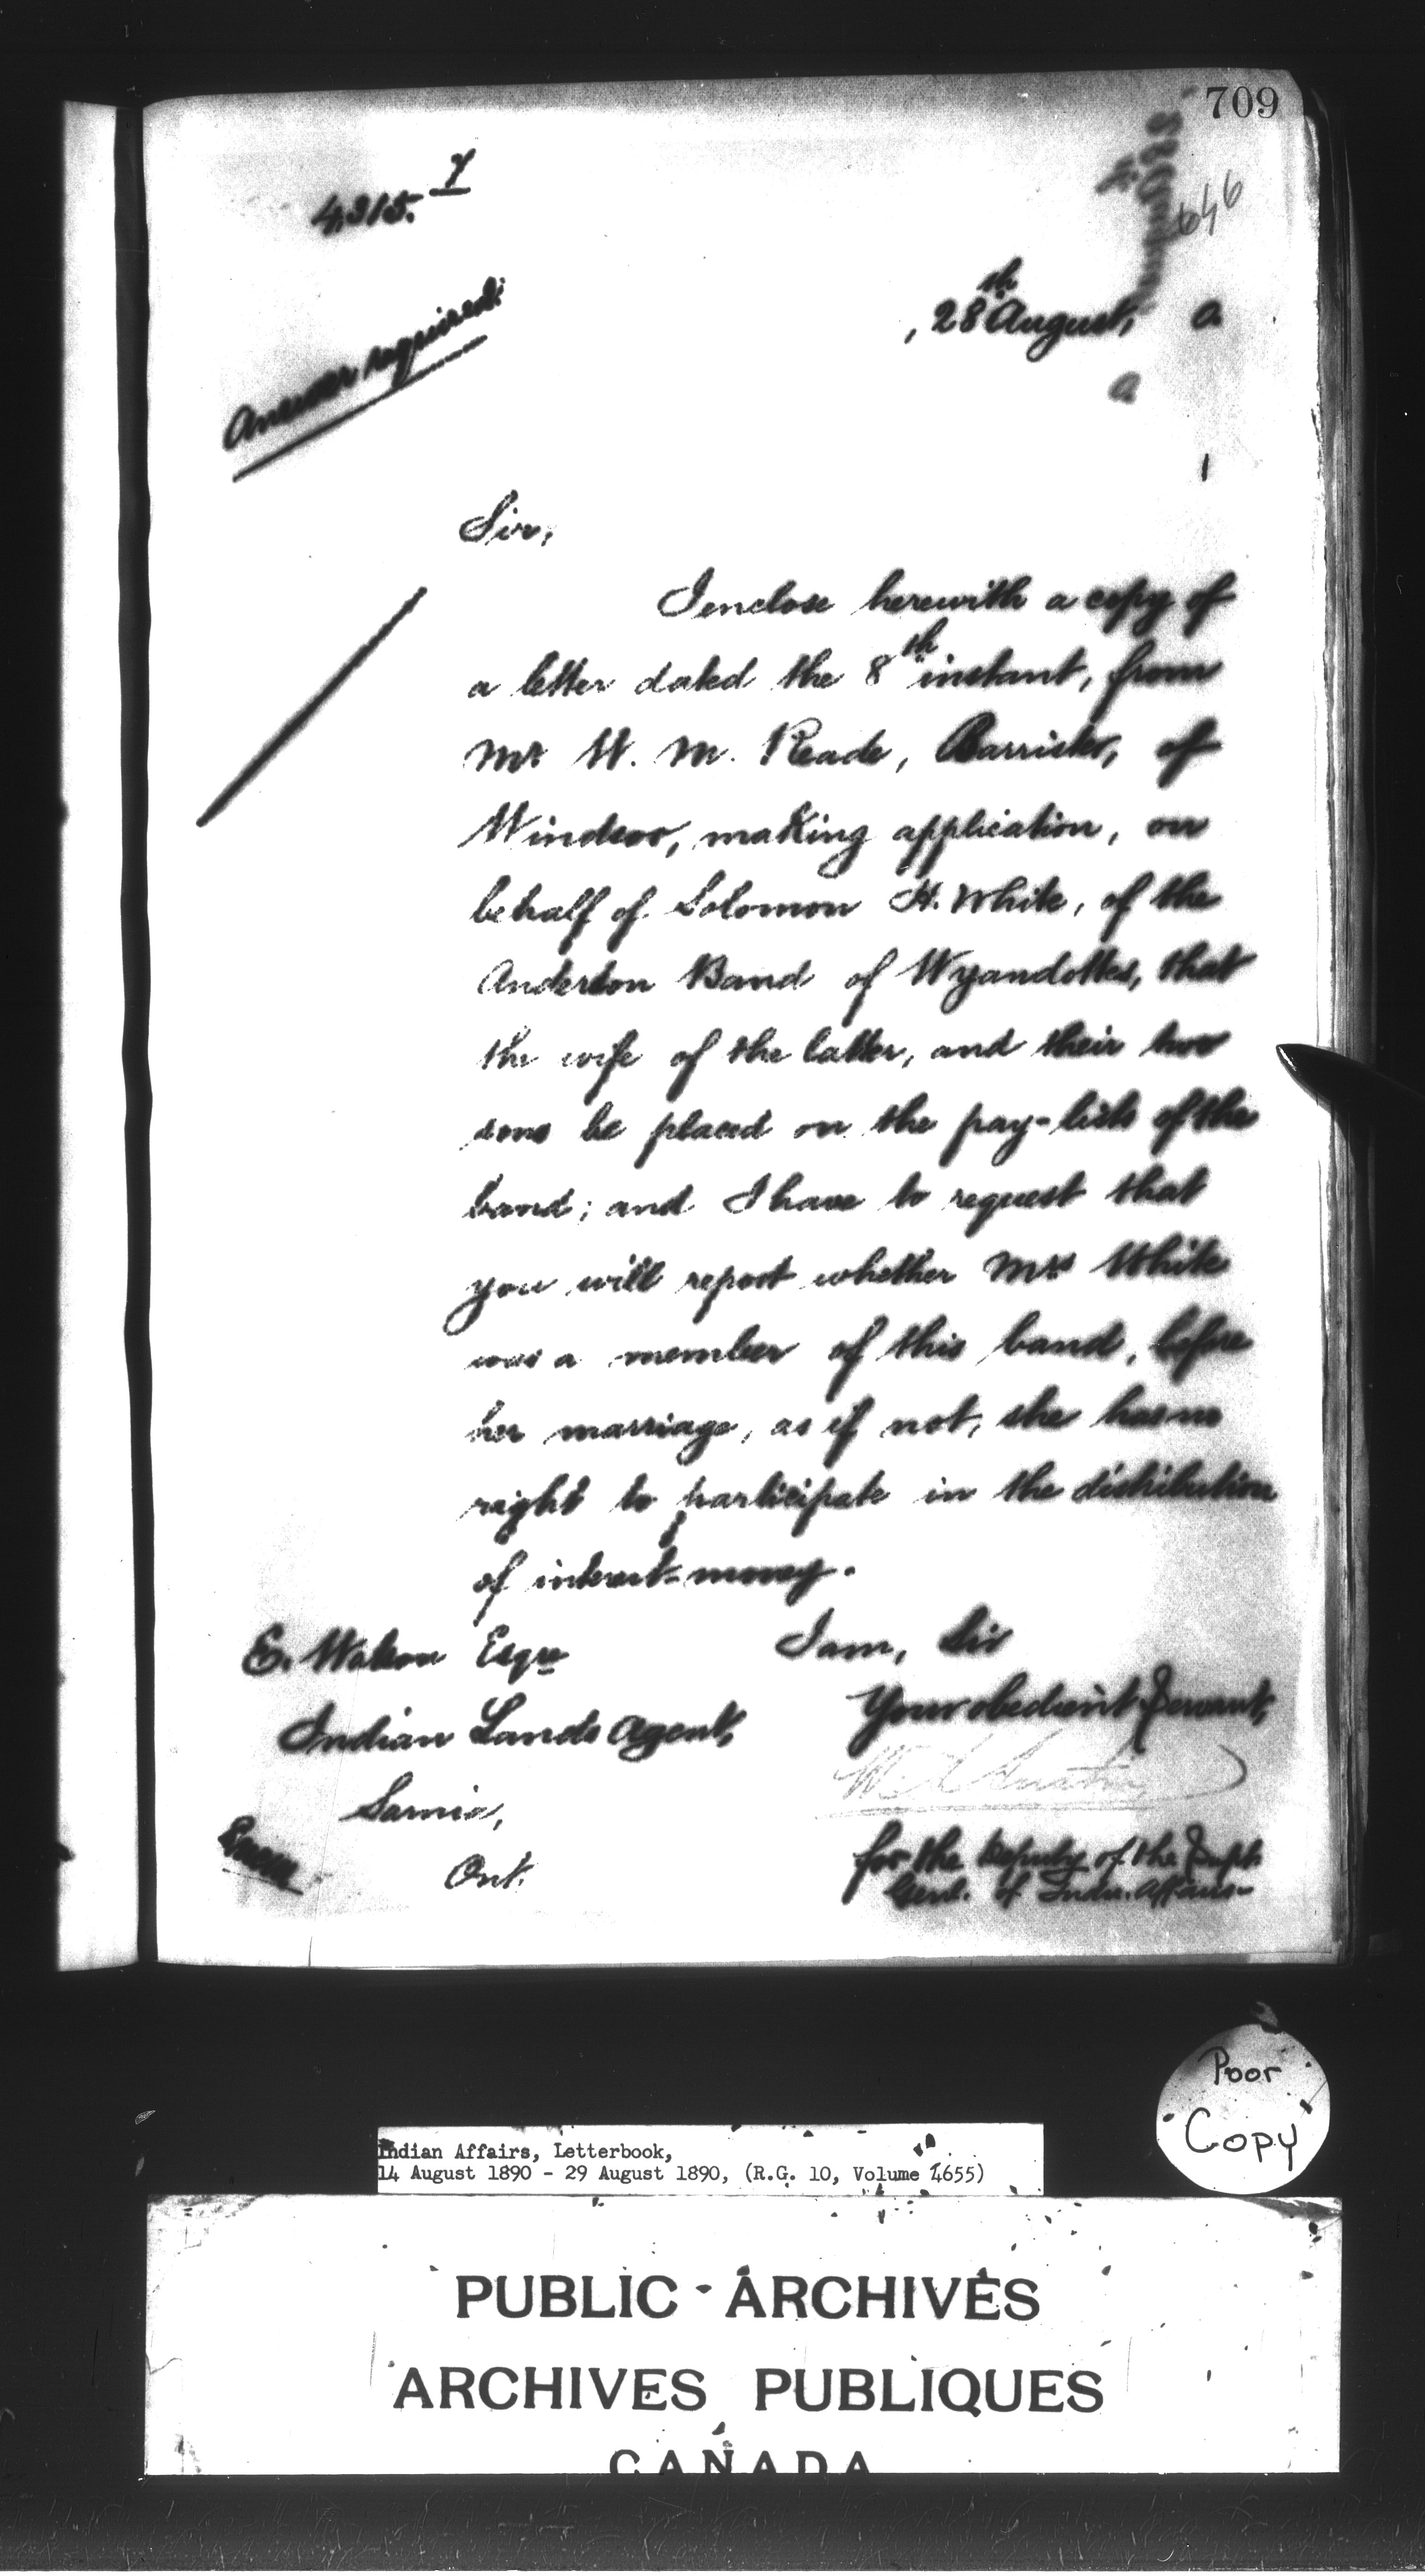 709
4315. 7
646
28th August,
Answer required.
Sir,
I enclose herewith a copy of
a letter dated the 8th instant, from
Mr W. M. Reade, Barrister, of
Windsor, making application, on
behalf of Solomon H. White, of the
Anderdon Band of Wyandottes, that
the wife of the latter, and their two
sons be placed on the pay-lists of the
band; and I have to request that
you will report whether Mrs White
was a member of this band, before
her marriage, as if not, she has no
right to participate in the distribution
of interest-money.
I am, Sir
Your obedient Servant,
for the Deputy of the Supt.
Genl. of Indn. Affairs
E. Watson Esqre
Indian Lands Agent,
Sarnia,
Ont.
Poor
"Copy"
Indian Affairs, Letterbook,
14 August 1890 - 29 August 1890, (R.G. 10, Volume 4655)
PUBLIC ARCHIVES
ARCHIVES PUBLIQUES
CANADA